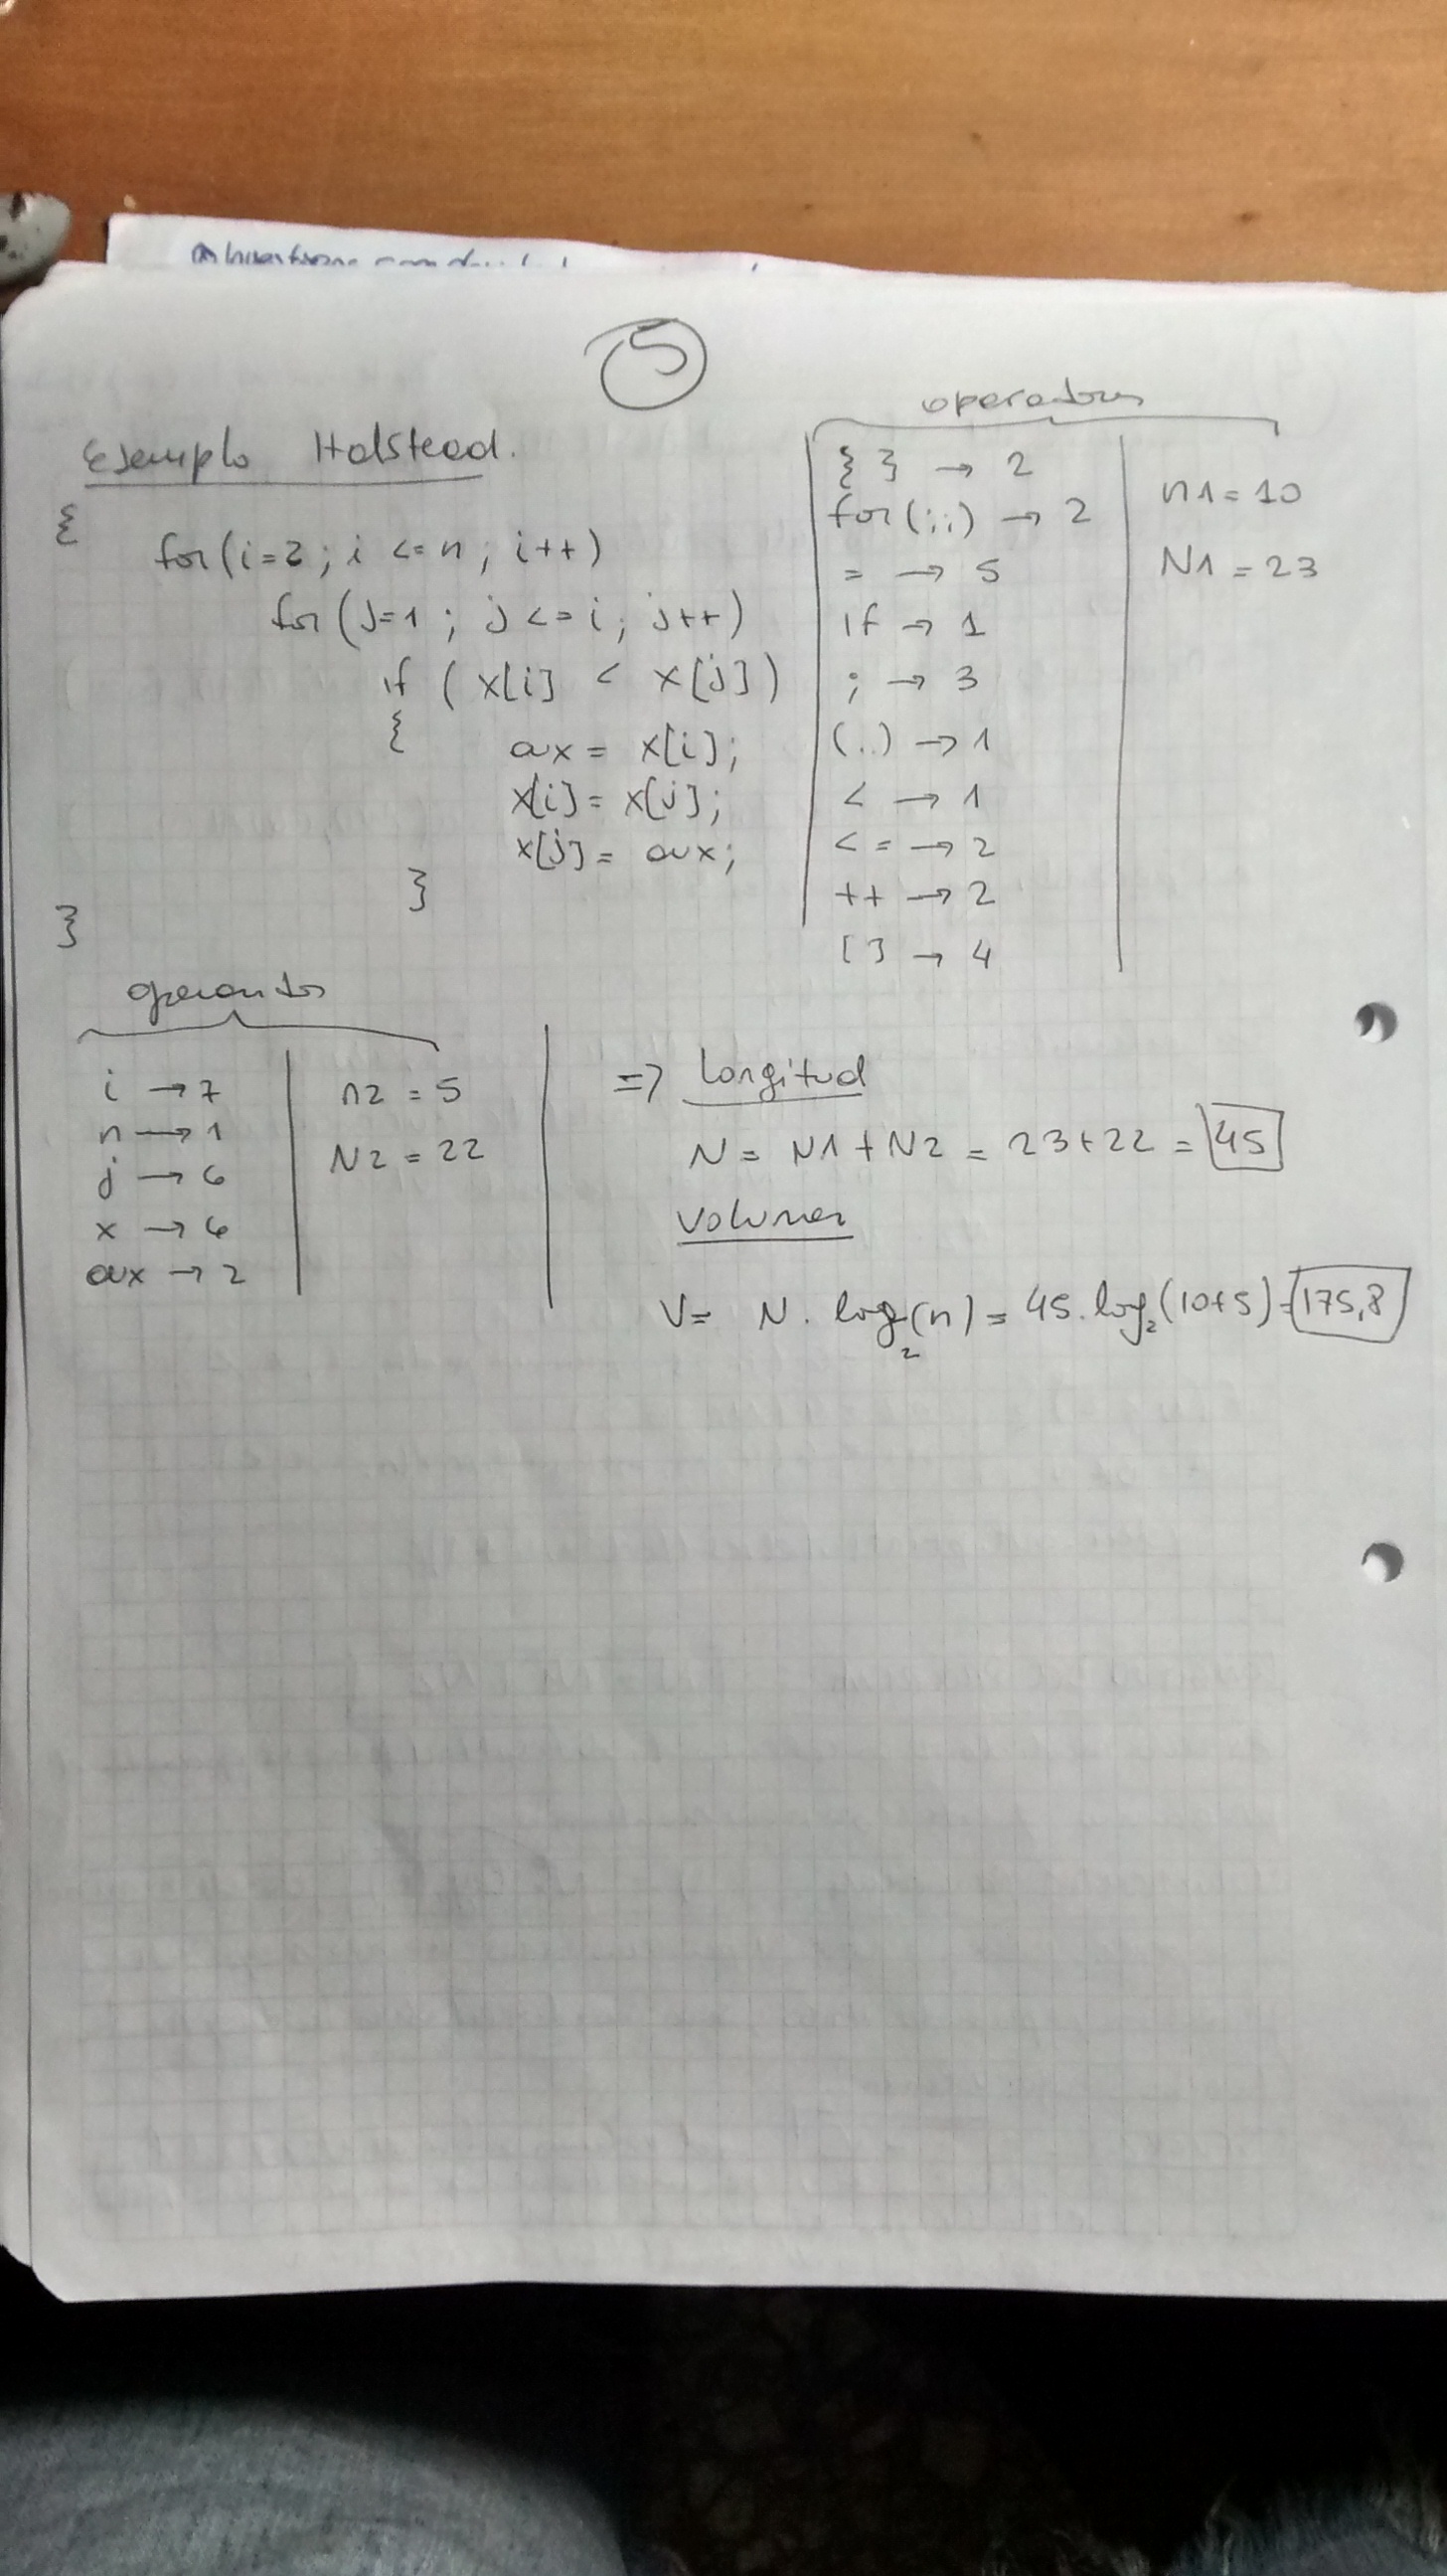 5
Ejemplo Halstead.
{
for(i=2; i <= n; i++)
for(j=1; j <= i; j++)
if ( x[i] < x[j] )
{
aux = x[i];
x[i] = x[j];
x[j] = aux;
}
}
operadores
{ } → 2
for(;;) → 2
= → 5
if → 1
; → 3
(..) → 1
< → 1
<= → 2
++ → 2
[ ] → 4
n1 = 10
N1 = 23
operandos
i → 7
n → 1
j → 6
x → 6
aux → 2
n2 = 5
N2 = 22
=> Longitud
N = N1 + N2 = 23+22 = 45
Volumen
V = N . log₂(n) = 45 . log₂(10+5) = 175,8